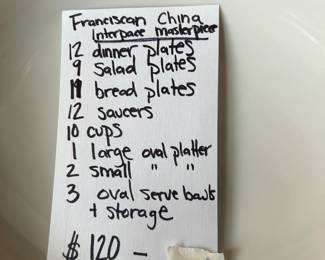 Franciscan China
Interpace masterpiece
12 dinner plates
9 Salad plates
11 bread plates
12 saucers
10 cups
1 large oval platter
2 small " "
3 oval serve bowls
+ storage
$ 120 –